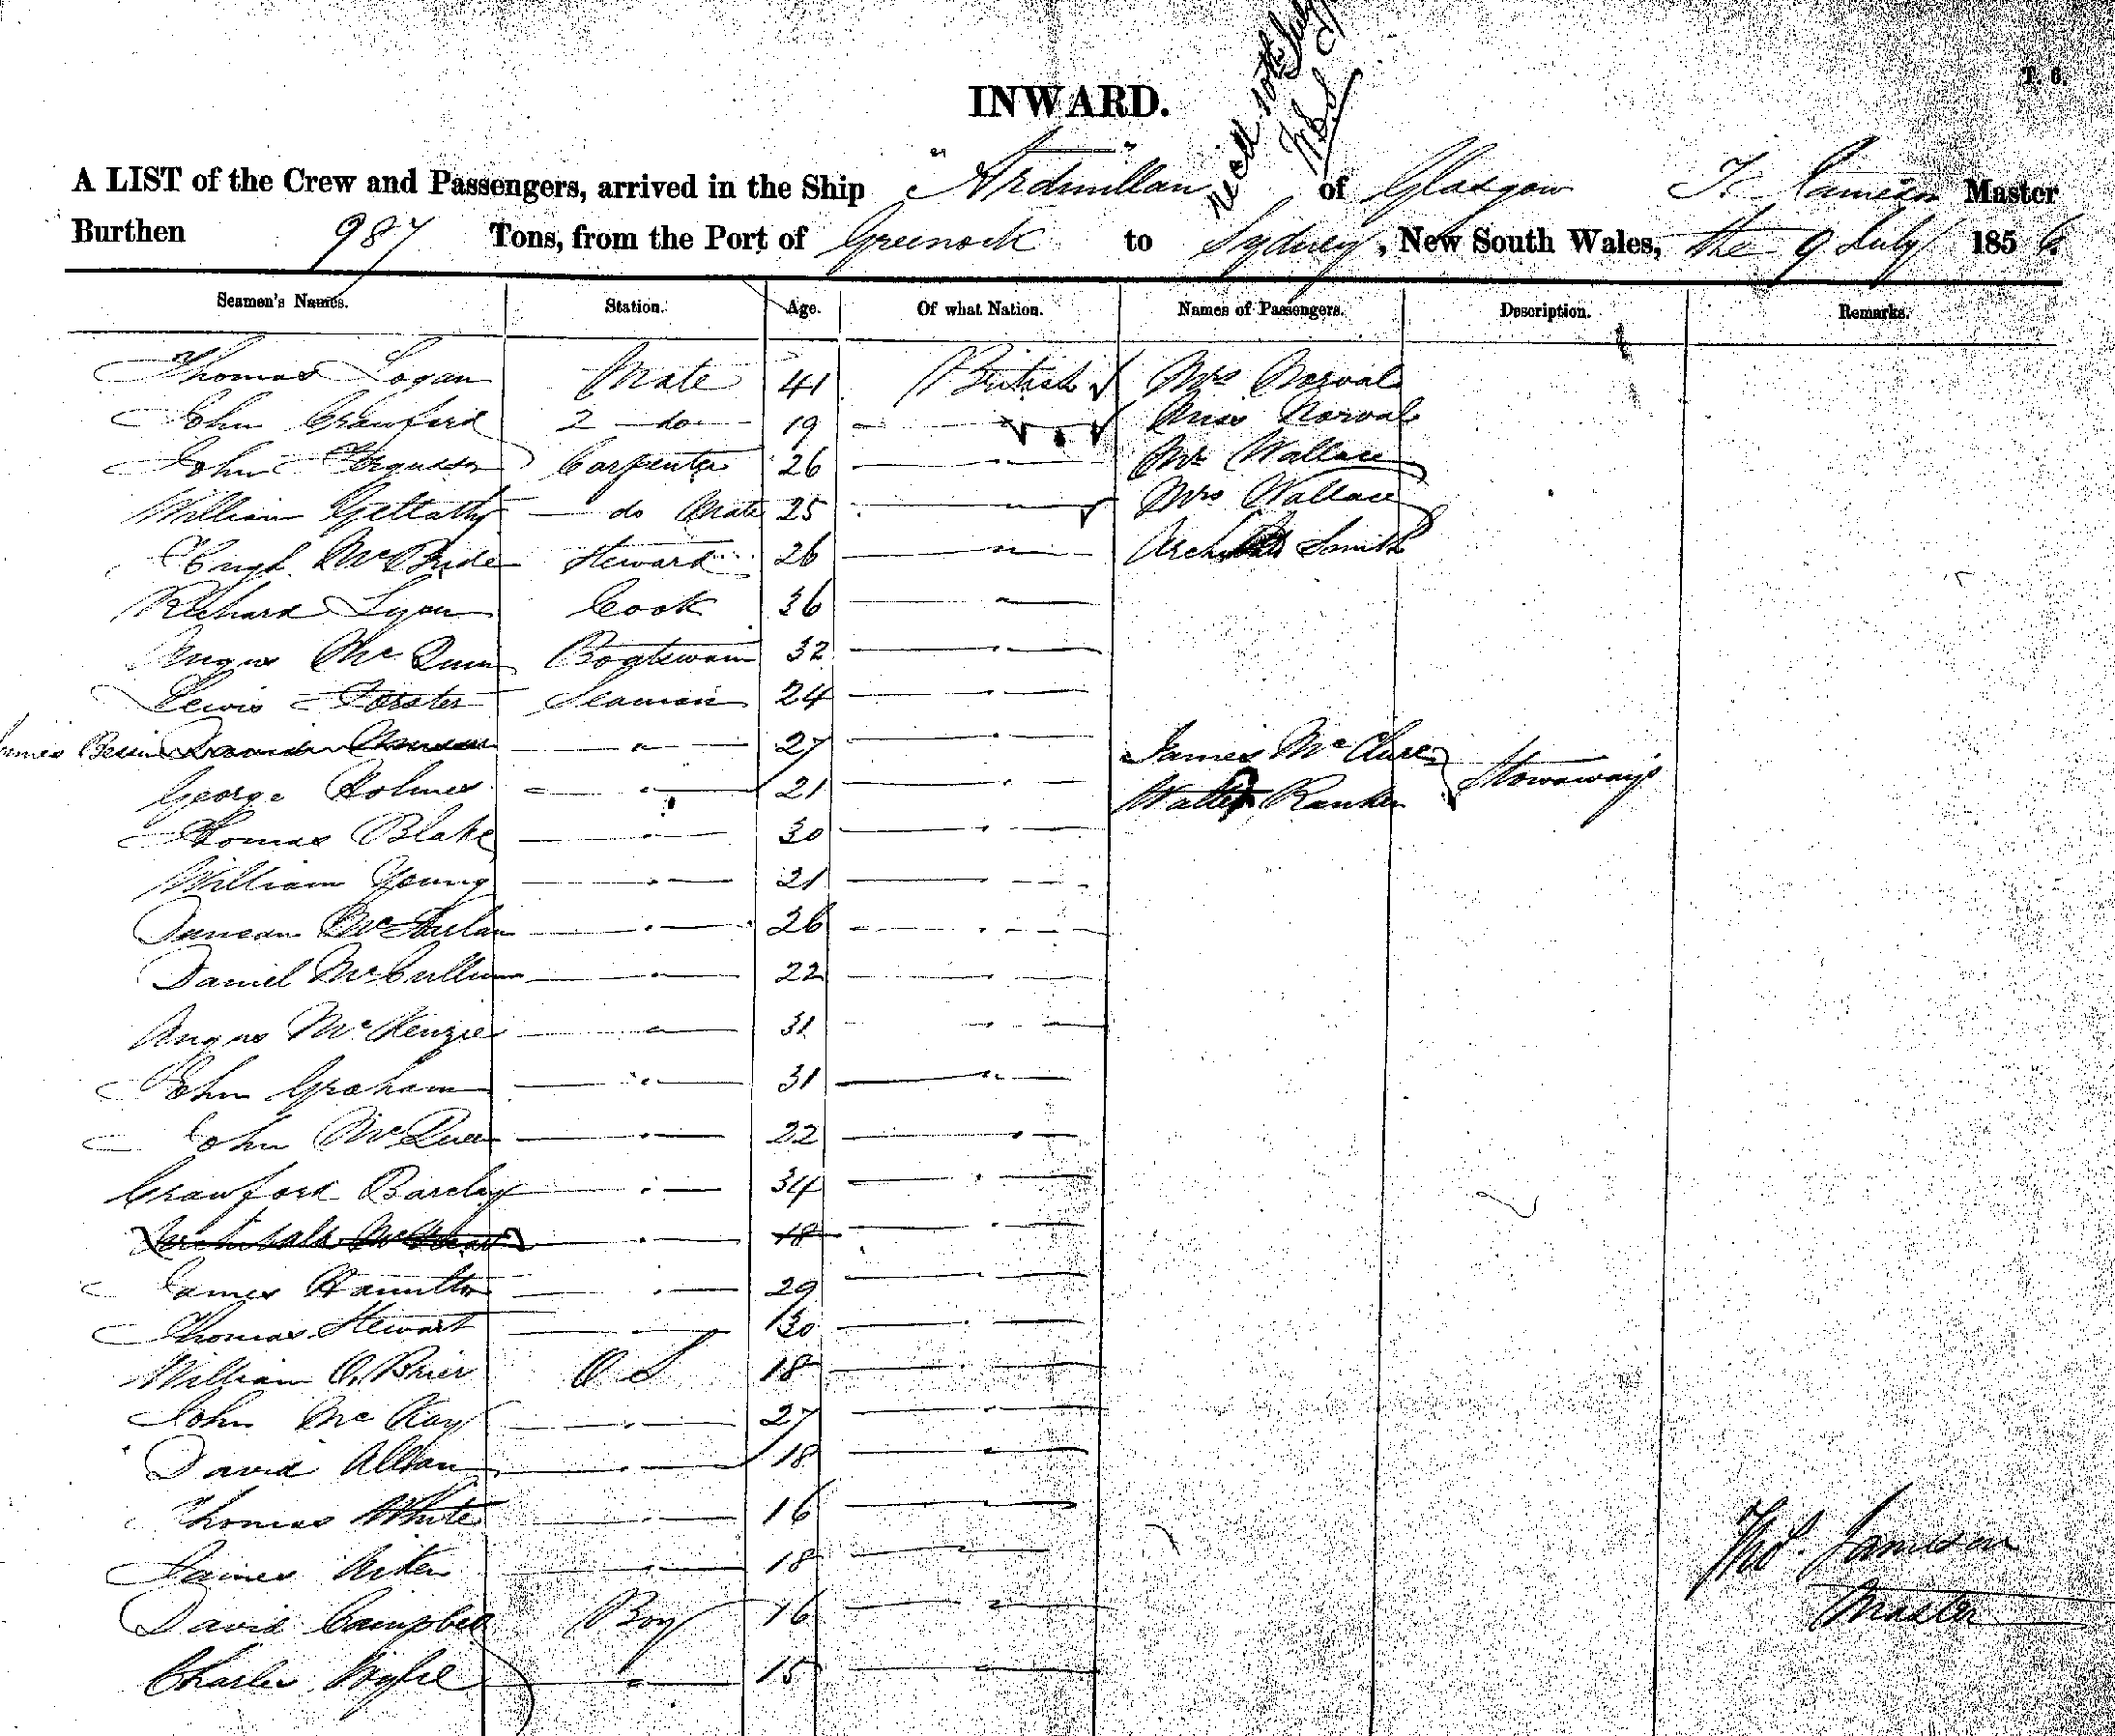 T. 6.
Recd 10th July
INWARD.
A LIST of the Crew and Passengers, arrived in the Ship "Ardmillan" of Glasgow T. Jameson Master
Burthen 987 Tons, from the Port of Greenock to Sydney, New South Wales, the 9 July 1856
Seamen's Names. Station. Age. Of what Nation. Names of Passengers. Description. Remarks.
Thomas Logan Mate 41 British Mrs Norval
John Crawford 2 do 19 " Miss Norval
John Ferguson Carpenter 26 " Mr Wallace
William Gellatly do Mate 25 " Mrs Wallace
Hugh McBride Steward 26 " Smith
Richard Lyon Cook 36 "
Angus Mc Boatswain 32 "
Lewis Forster Seaman 24 "
James " 27 " James McClure
George Holmes " 21 " Walter Stowaways
Thomas Blake " 30 "
William Young " 21 "
Duncan McFarlan " 26 "
Daniel McCullum " 22 "
Angus McKenzie " 31 "
John Graham " 31 "
John Mc " 22 "
Crawford Barclay " 34 "
Archibald " 18 "
James Hamilton " 29 "
Thomas Stewart " 30 "
William O.Brier O S 18 "
John McKay " 27 "
David Allan " 18 "
Thomas White " 16 "
James Aitken " 18 "
David Campbell Boy 16 "
Charles Wylie " 15 "
Thos. Jameson
Master